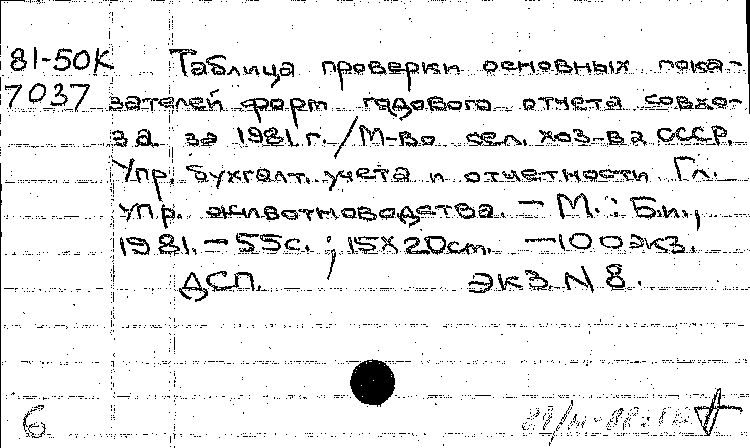 81-50К Таблица проверки основных пока-
7037 зателей форм годового отчета совхо-
за за 1981 г. / М-во сел. хоз-ва СССР.
Упр. бухгалт. учета и отчетности. Гл.
упр. животноводства. — М.: Б.и.,
1981. — 55 с. ; 15х20 см. — 100 экз.
ДСП. Экз. N 8.
6